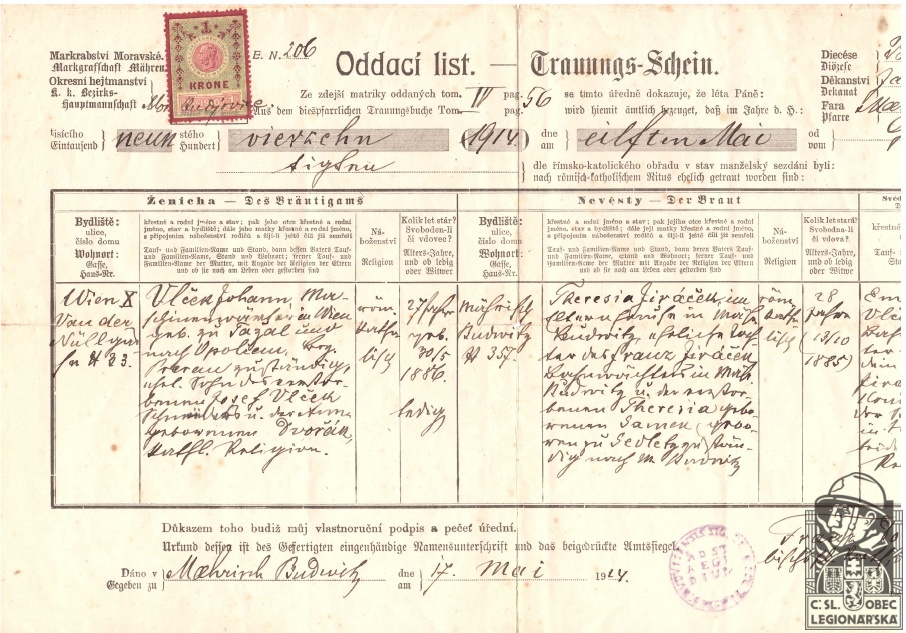 Markrabství Moravské.
Markgrafschaft Mähren.
Okresní hejtmanství
K. k. Bezirks-
Hauptmannschaft
1
KRONE
E. N. 206
Oddací list. — Trauungs-Schein.
Ze zdejší matriky oddaných tom. IV pag. 56 se tímto úředně dokazuje, že léta Páně:
Aus dem diespfarrlichen Trauungsbuche Tom. pag. wird hiemit ämtlich bezeugt, daß im Jahre d. H.:
Diecése
Diözese
Děkanství
Dekanat
Fara
Pfarre
tisícího
Eintausend
neun
stého
Hundert
vierzehn
(1914)
dne
am
eilften Mai
od
vom
tigsten
dle římsko-katolického obřadu v stav manželský sezdáni byli:
nach römisch-katholischem Ritus ehelich getraut worden sind:
Ženicha — Des Bräutigams
Nevěsty — Der Braut
Bydliště:
ulice,
číslo domu
Wohnort:
Gasse,
Haus-Nr.
křestné a rodní jméno a stav; pak jeho otce křestné a rodní
jméno, stav a bydliště; dále jeho matky křestné a rodní jméno,
s připojením náboženství rodičů a žijí-li ještě čili již zemřeli
Tauf- und Familien-Name und Stand, dann dessen Vaters Tauf-
und Familien-Name, Stand und Wohnort; ferner Tauf- und
Familien-Name der Mutter, mit Angabe der Religion der Eltern
und ob sie noch am Leben oder gestorben sind
Ná-
boženství
Religion
Kolik let stár?
Svoboden-li
či vdovec?
Alters-Jahre,
und ob ledig
oder Witwer
Bydliště:
ulice,
číslo domu
Wohnort:
Gasse,
Haus-Nr.
křestné a rodní jméno a stav; pak jejího otce křestné a rodní
jméno, stav a bydliště; dále její matky křestné a rodní jméno,
s připojením náboženství rodičů a žijí-li ještě čili již zemřeli
Tauf- und Familien-Name und Stand, dann deren Vaters Tauf-
und Familien-Name, Stand und Wohnort; ferner Tauf- und
Familien-Name der Mutter, mit Angabe der Religion der Eltern
und ob sie noch am Leben oder gestorben sind
Ná-
boženství
Religion
Kolik let stará?
Svobodna-li
či vdova?
Alters-Jahre,
und ob ledig
oder Witwe
Wien X
Van der
Nüllgas-
se № 23.
Vlček Johann, Ma-
in Wien
geb. zu und
nach Opolicn, Bez.
Prerau zuständig,
ehel. Sohn des verstor-
benen Josef Vlček
Schneiders u. der Anna
geborenen Dvořák,
kathl. Religion.
röm.
katho
lisch
27 Jahre
geb.
30/5
1886.
ledig
Mährisch
Budwitz
№ 357.
Theresia Jiráček, im
Elternhause in Mähr.
Budwitz, eheliche Toch-
ter des Franz Jiráček,
in Mähr.
Budwitz u. der verstor-
benen Theresia gebo-
renen Samek, gebo-
ren zu Sedletz zustän-
dig nach M. Budwitz
röm
kath
lisch
28
Jahre
(13/10
1885)
Důkazem toho budiž můj vlastnoruční podpis a pečeť úřední.
Urkund dessen ist des Gefertigten eigenhändige Namensunterschrift und das beigedrückte Amtssiegel.
Dáno v
Gegeben zu
Mæhrisch Budwitz
dne
am
17. Mai
1914.
ČSL. OBEC
LEGIONÁŘSKÁ